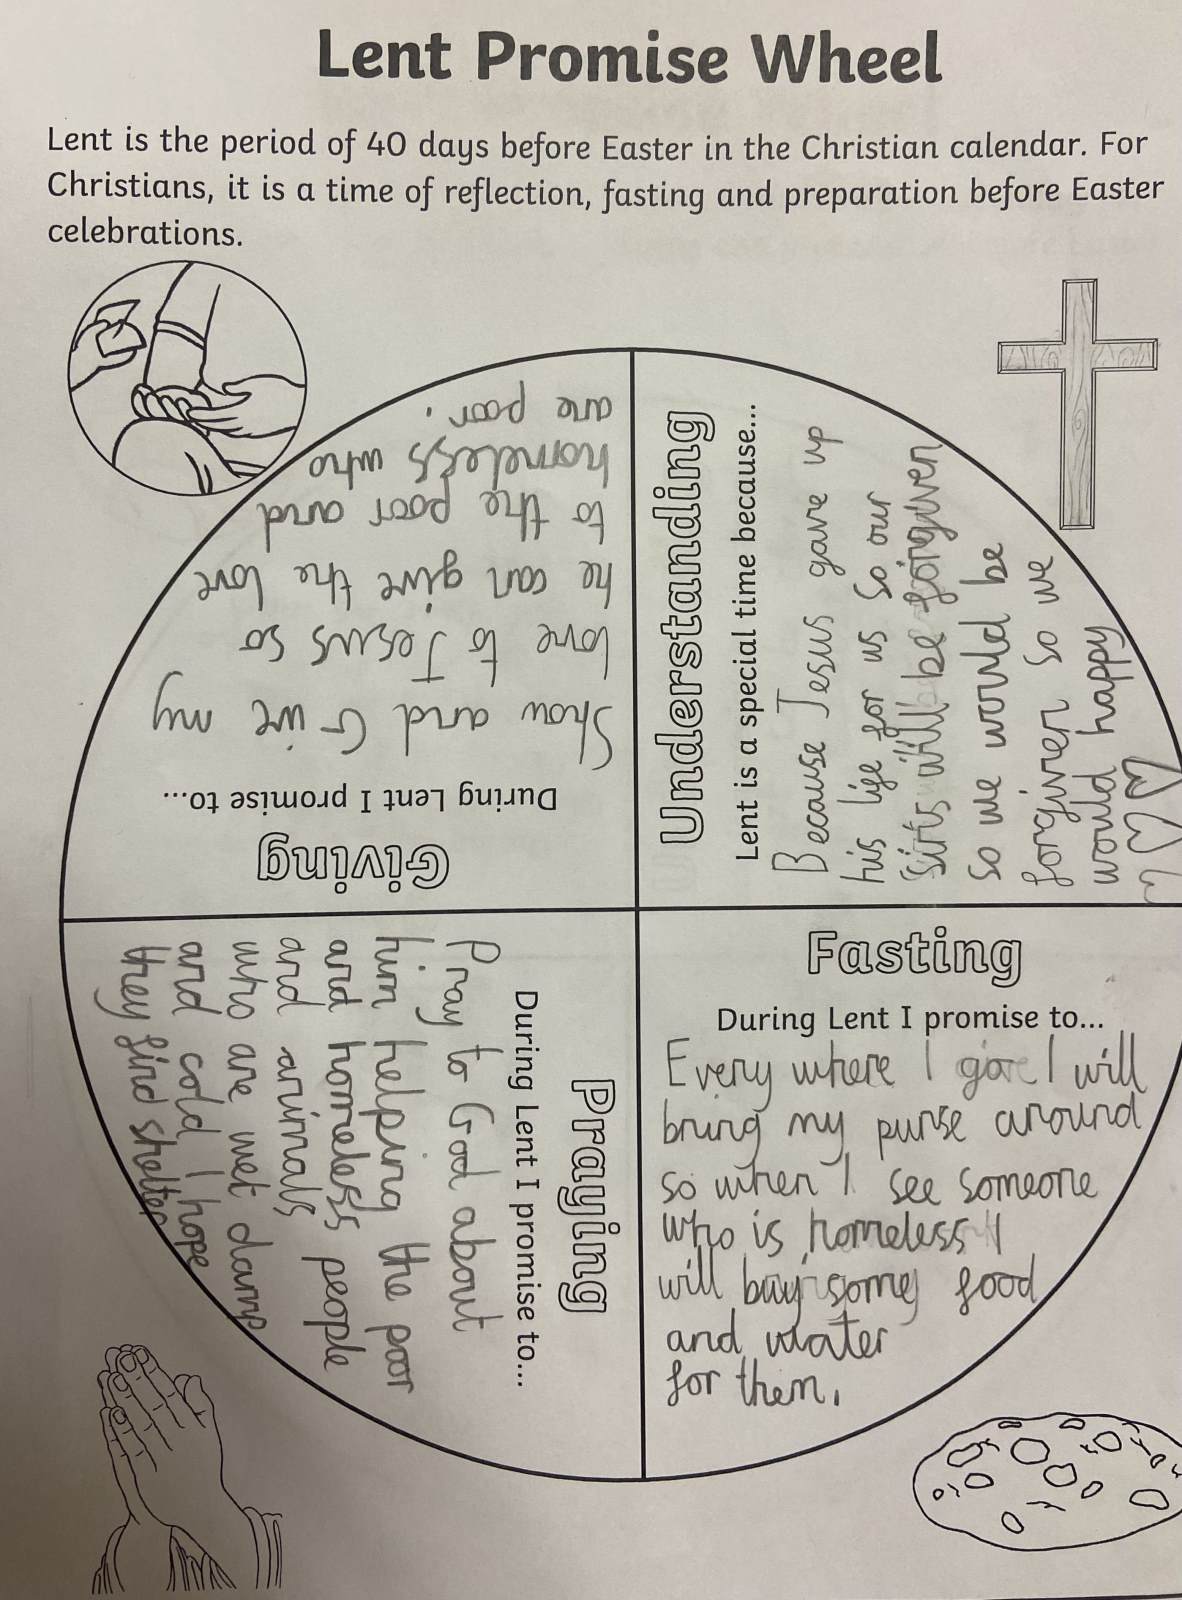 Lent Promise Wheel
Lent is the period of 40 days before Easter in the Christian calendar. For
Christians, it is a time of reflection, fasting and preparation before Easter
celebrations.
Giving
During Lent I promise to...
Show and Give my
love to Jesus so
he can give the love
to the poor and
homeless who
are poor.
Understanding
Lent is a special time because...
Because Jesus gave up
his life for us so our
sins will be forgiven
so we would be
forgiven so we
would happy
Fasting
During Lent I promise to...
Every where I go I will
bring my purse around
so when I see someone
who is homeless I
will buy some food
and water
for them.
Praying
During Lent I promise to...
Pray to God about
him helping the poor
and homeless people
and animals
who are wet damp
and cold I hope
they find shelter